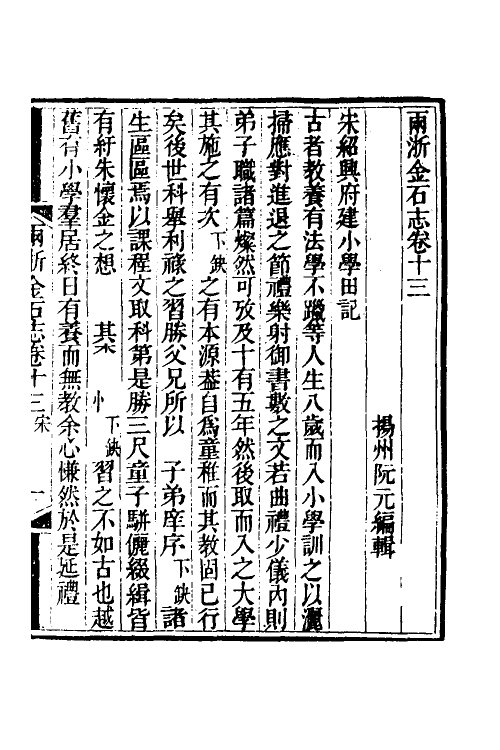 兩浙金石志卷十三
揚州阮元編輯
宋紹興府建小學田記
古者教養有法學不躐等人生八歲而入小學訓之以灑
掃應對進退之節禮樂射御書數之文若曲禮少儀內則
弟子職諸篇燦然可攷及十有五年然後取而入之大學
其施之有次下缺之有本源葢自爲童稚而其教固已行
矣後世科舉利祿之習勝父兄所以 子弟庠序下缺諸
生區區焉以課程文取科第是勝三尺童子駢儷綴緝皆
有紆朱懷金之想 其 忄下缺習之不如古也越
舊有小學羣居終日有養而無教余心慊然於是延禮
兩浙金石志卷十三 宋 一